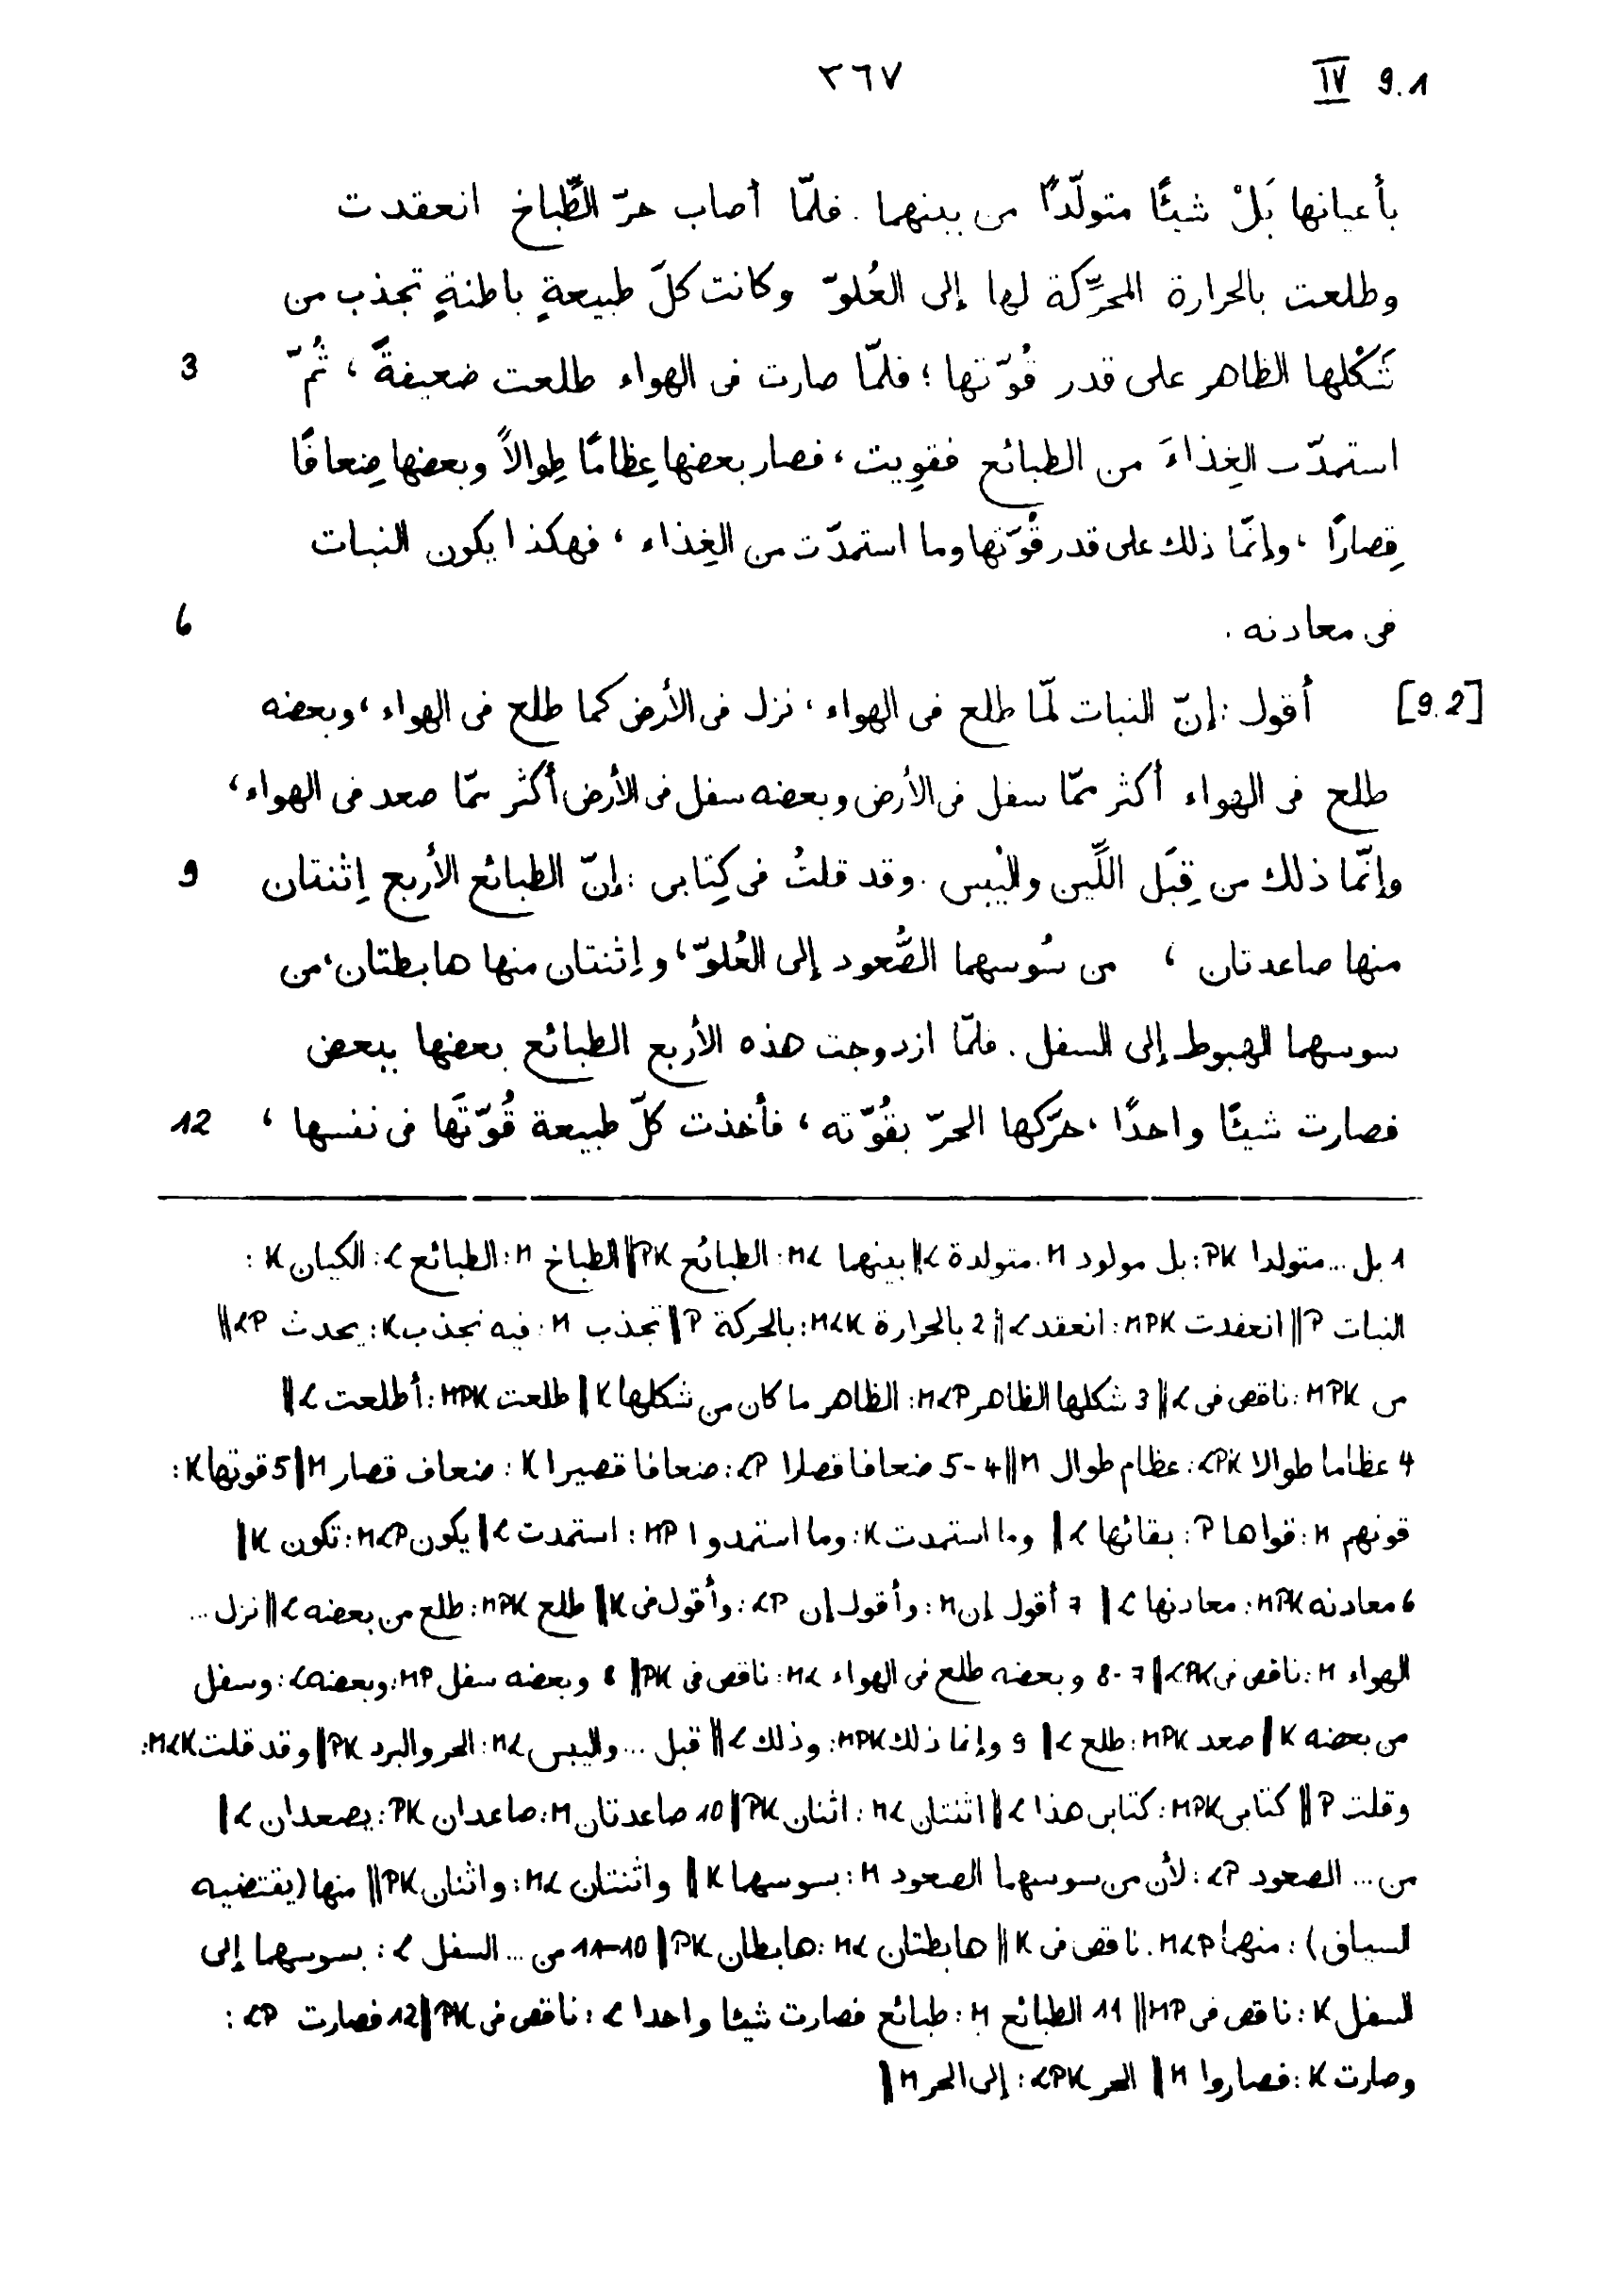 ٣٦٧ IV 9.1
بأعيانها بَلْ شيئًا متولّدًا من بينهما. فلمّا أصاب حرّ الطَّبّاخ انعقدت
وطلعت بالحرارة المحرِّكة لها إلى العُلوّ وكانت كلّ طبيعةٍ باطنةٍ تجذب من
شَكْلها الظاهر على قدر قُوّتها؛ فلمّا صارت فى الهواء طلعت ضعيفةً، ثُمّ 3
استمدّت الغِذاءَ من الطبائع فقوِيت، فصار بعضها عِظامًا طِوالاً وبعضها ضِعافًا
قِصارًا، وإنّما ذلك على قدر قُوّتها وما استمدّت من الغِذاء، فهكذا يكون النبات
فى معادنه. 6
[9.2] أقول: إنّ النبات لمّا طلع فى الهواء، نزل فى الأرض كما طلع فى الهواء، وبعضه
طلع فى الهواء أكثر ممّا سفل فى الأرض وبعضه سفل فى الأرض أكثر ممّا صعد فى الهواء،
وإنّما ذلك من قِبَل اللِّين واليُبس. وقد قلتُ فى كِتابى: إنّ الطبائع الأربع اِثنتان 9
منها صاعدتان، من سُوسهما الصُّعود إلى العُلوّ، واِثنتان منها هابطتان، من
سوسهما الهبوط إلى السفل. فلمّا ازدوجت هذه الأربع الطبائع بعضها ببعض
فصارت شيئًا واحدًا، حرّكها الحرّ بقُوّته، فأخذت كلّ طبيعة قُوّتَها فى نفسها، 12
1 بل ... متولدا PK: بل مولود M. متولدة L ‖ بينهما ML: الطبائع PK ‖ الطباخ M: الطبائع L: الكيان K:
النبات P ‖ انعقدت MPK: انعقد L ‖ 2 بالحرارة MLK: بالحركة P ‖ تجذب M: فيه تجذب K: يحدث LP ‖
من MPK: ناقص فى L ‖ 3 شكلها الظاهر MLP: الظاهر ما كان من شكلها K ‖ طلعت MPK: أطلعت L ‖
4 عظاما طوالا LPK: عظام طوال M ‖ 4-5 ضعافا قصارا LP: ضعافا قصيرا K: ضعاف قصار M ‖ 5 قوتها K:
قوتهم M: قواها P: بقائها L ‖ وما استمدت K: وما استمدوا MP: استمدت L ‖ يكون MLP: تكون K ‖
6 معادنه MPK: معادنها L ‖ 7 أقول إن M: وأقول إن LP: وأقول فى K ‖ طلع MPK: طلع من بعضه L ‖ نزل ...
الهواء M: ناقص فى LPK ‖ 7-8 وبعضه طلع فى الهواء ML: ناقص فى PK ‖ 8 وبعضه سفل MP: وبعضه L: وسفل
من بعضه K ‖ صعد MPK: طلع L ‖ 9 وإنما ذلك MPK: وذلك L ‖ قبل ... واليبس ML: الحر والبرد PK ‖ وقد قلت MLK:
وقلت P ‖ كتابى MPK: كتابى هذا L ‖ اثنتان ML: اثنان PK ‖ 10 صاعدتان M: صاعدان PK: يصعدان L ‖
من ... الصعود LP: لأن من سوسهما الصعود M: بسوسهما K ‖ واثنتان ML: واثنان PK ‖ منها (يقتضيه
السياق): منهما MLP. ناقص فى K ‖ هابطتان ML: هابطان PK ‖ 10-11 من ... السفل L: بسوسهما إلى
السفل K: ناقص فى MP ‖ 11 الطبائع M: طبائع فصارت شيئا واحدا L: ناقص فى PK ‖ 12 فصارت LP:
وصارت K: فصاروا M ‖ الحر LPK: إلى الحر M ‖